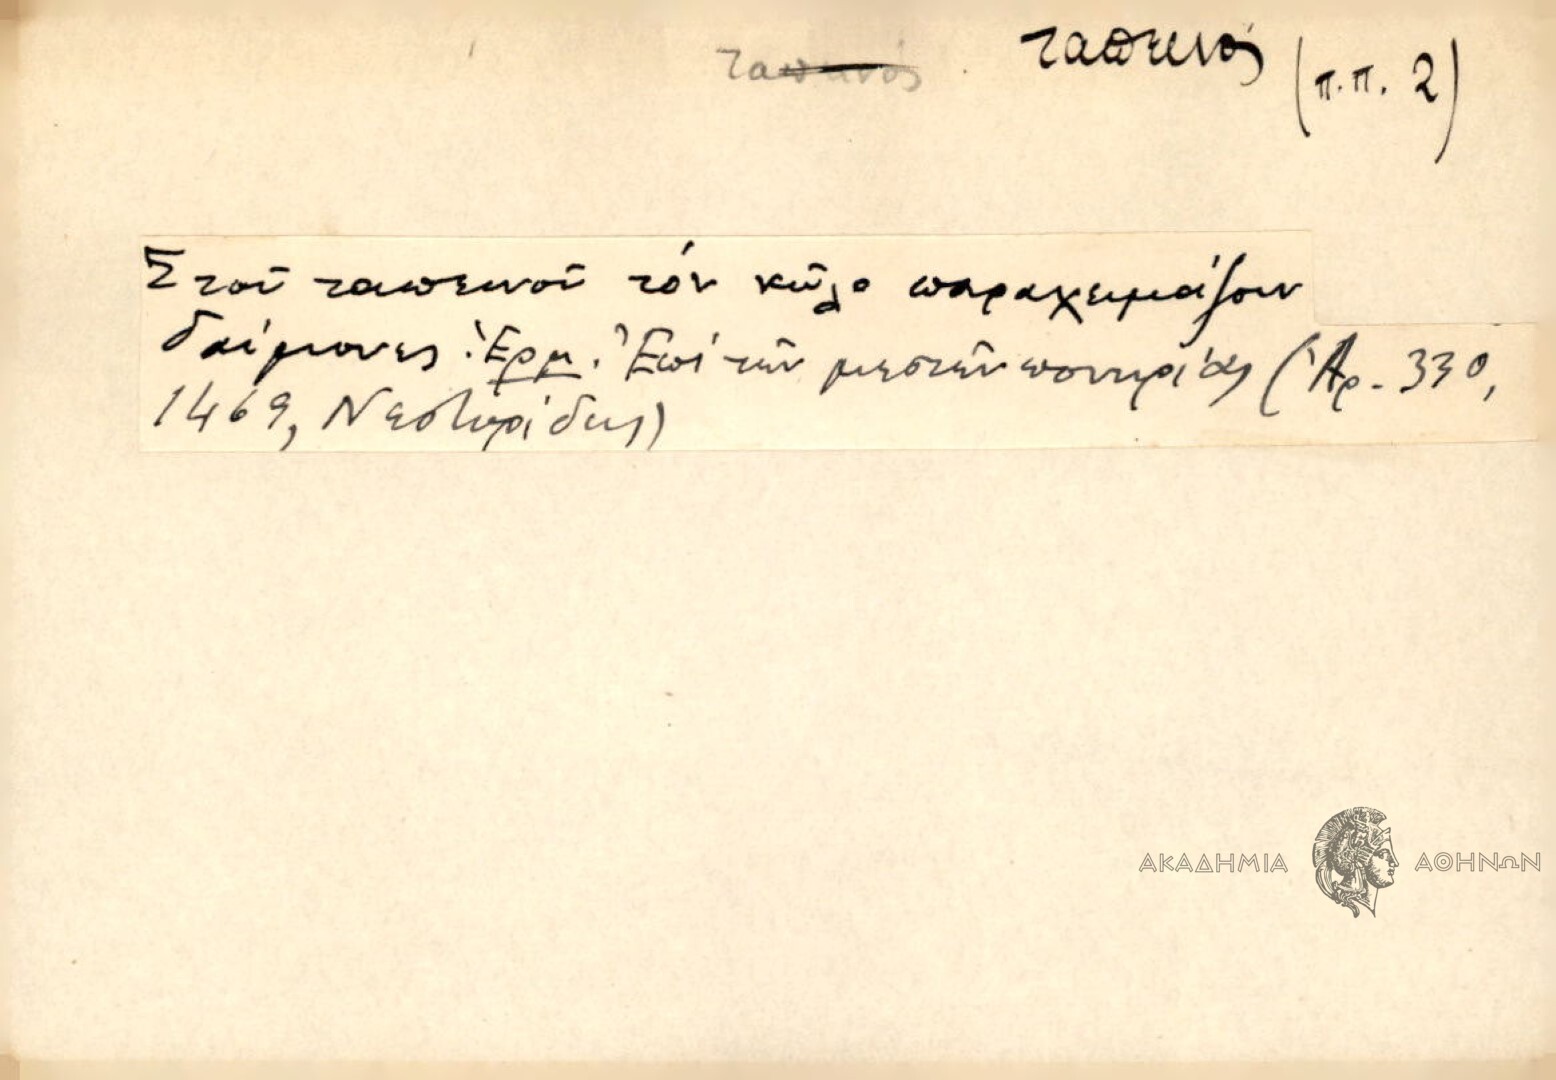 ταπεινός ταπεινός (π.π. 2)
Στοῦ ταπεινοῦ τόν κῶλο παραχειμάζουν
δαίμονες. Ἑρμ. Ἐπί τῶν μεστῶν πονηρίας (Ἀρ. 330,
1469, Νεστορίδης)
ΑΚΑΔΗΜΙΑ ΑΘΗΝΩΝ